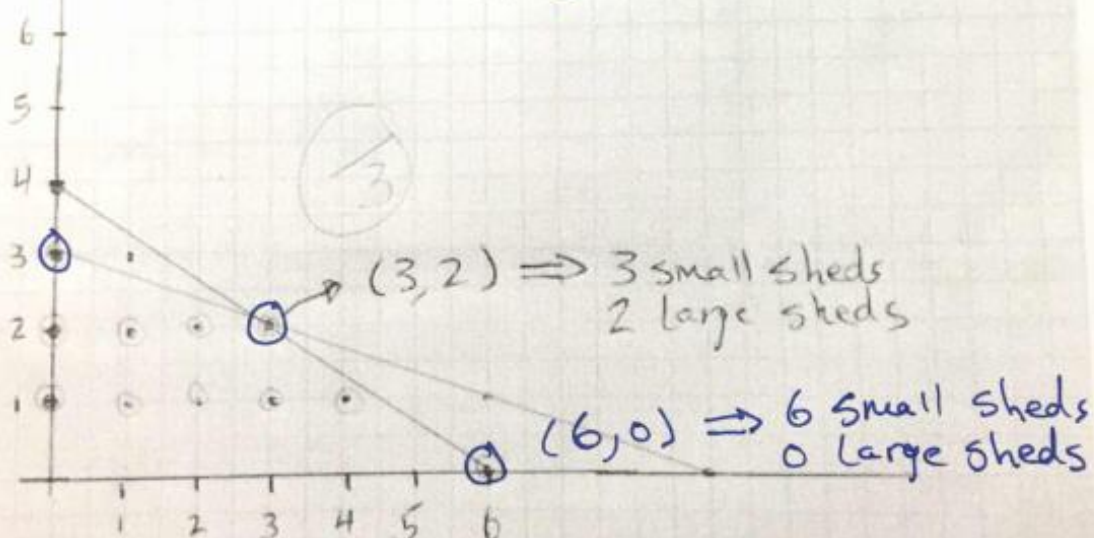 6
5
4
/3
3
(3,2) ⇒ 3 small sheds
2
2 large sheds
1
(6,0) ⇒ 6 small sheds
0 large sheds
1 2 3 4 5 6